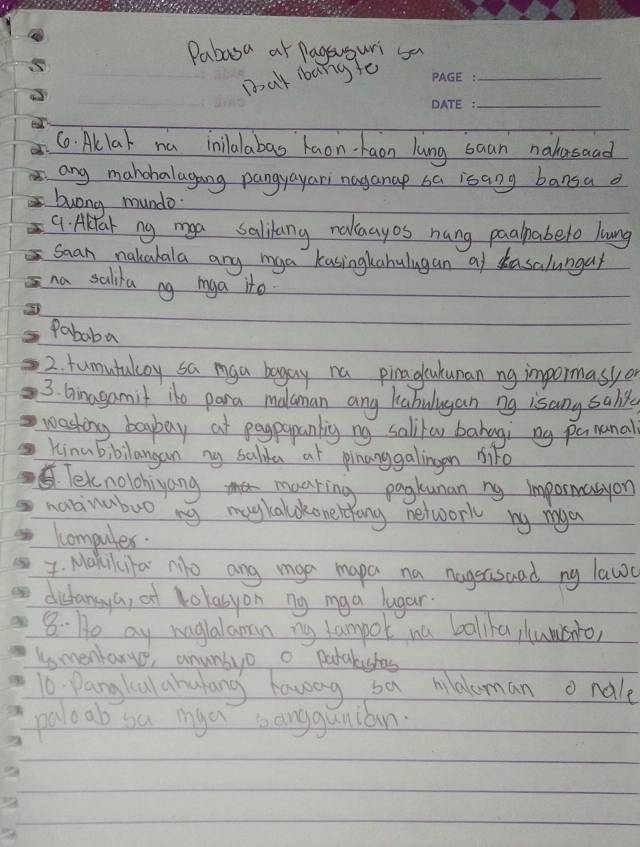 Pabasa at Pagsusuri sa
Iba't ibang te
PAGE :
DATE :
6. Aklat na inilalabas taon-taon kung saan nakasaad
ang mahahalagang pangyayari naganap sa isang bansa o
buong mundo.
9. Aklat ng mga salitang nakaayos nang paalpabeto kung
saan nakatala ang mga kasingkahulugan at kasalungat
na salita ng mga ito.
Pababa
2. tumutukoy sa mga bagay na pinagkukunan ng impormasyon
3. Ginagamit ito para malaman ang kahulugan ng isang salita
wastong baybay at pagpapantig ng salita bahagi ng pananali
kinabibilangan ng salita at pinanggalingan nito
5. Teknolohiyang maaring pagkunan ng Impormasyon
na binubuo ng magkakakonektang network ng mga
komputer.
7. Makikita nito ang mga mapa na nagsasaad ng lawa
distansya, at lokasyon ng mga lugar.
8. Ito ay naglalaman ng tampok na balita, kuwento,
komentaryo, anunsyo o patalastas
10. Pangkalahatang tawag sa nilalaman o nale
paloob sa mga sanggunian.